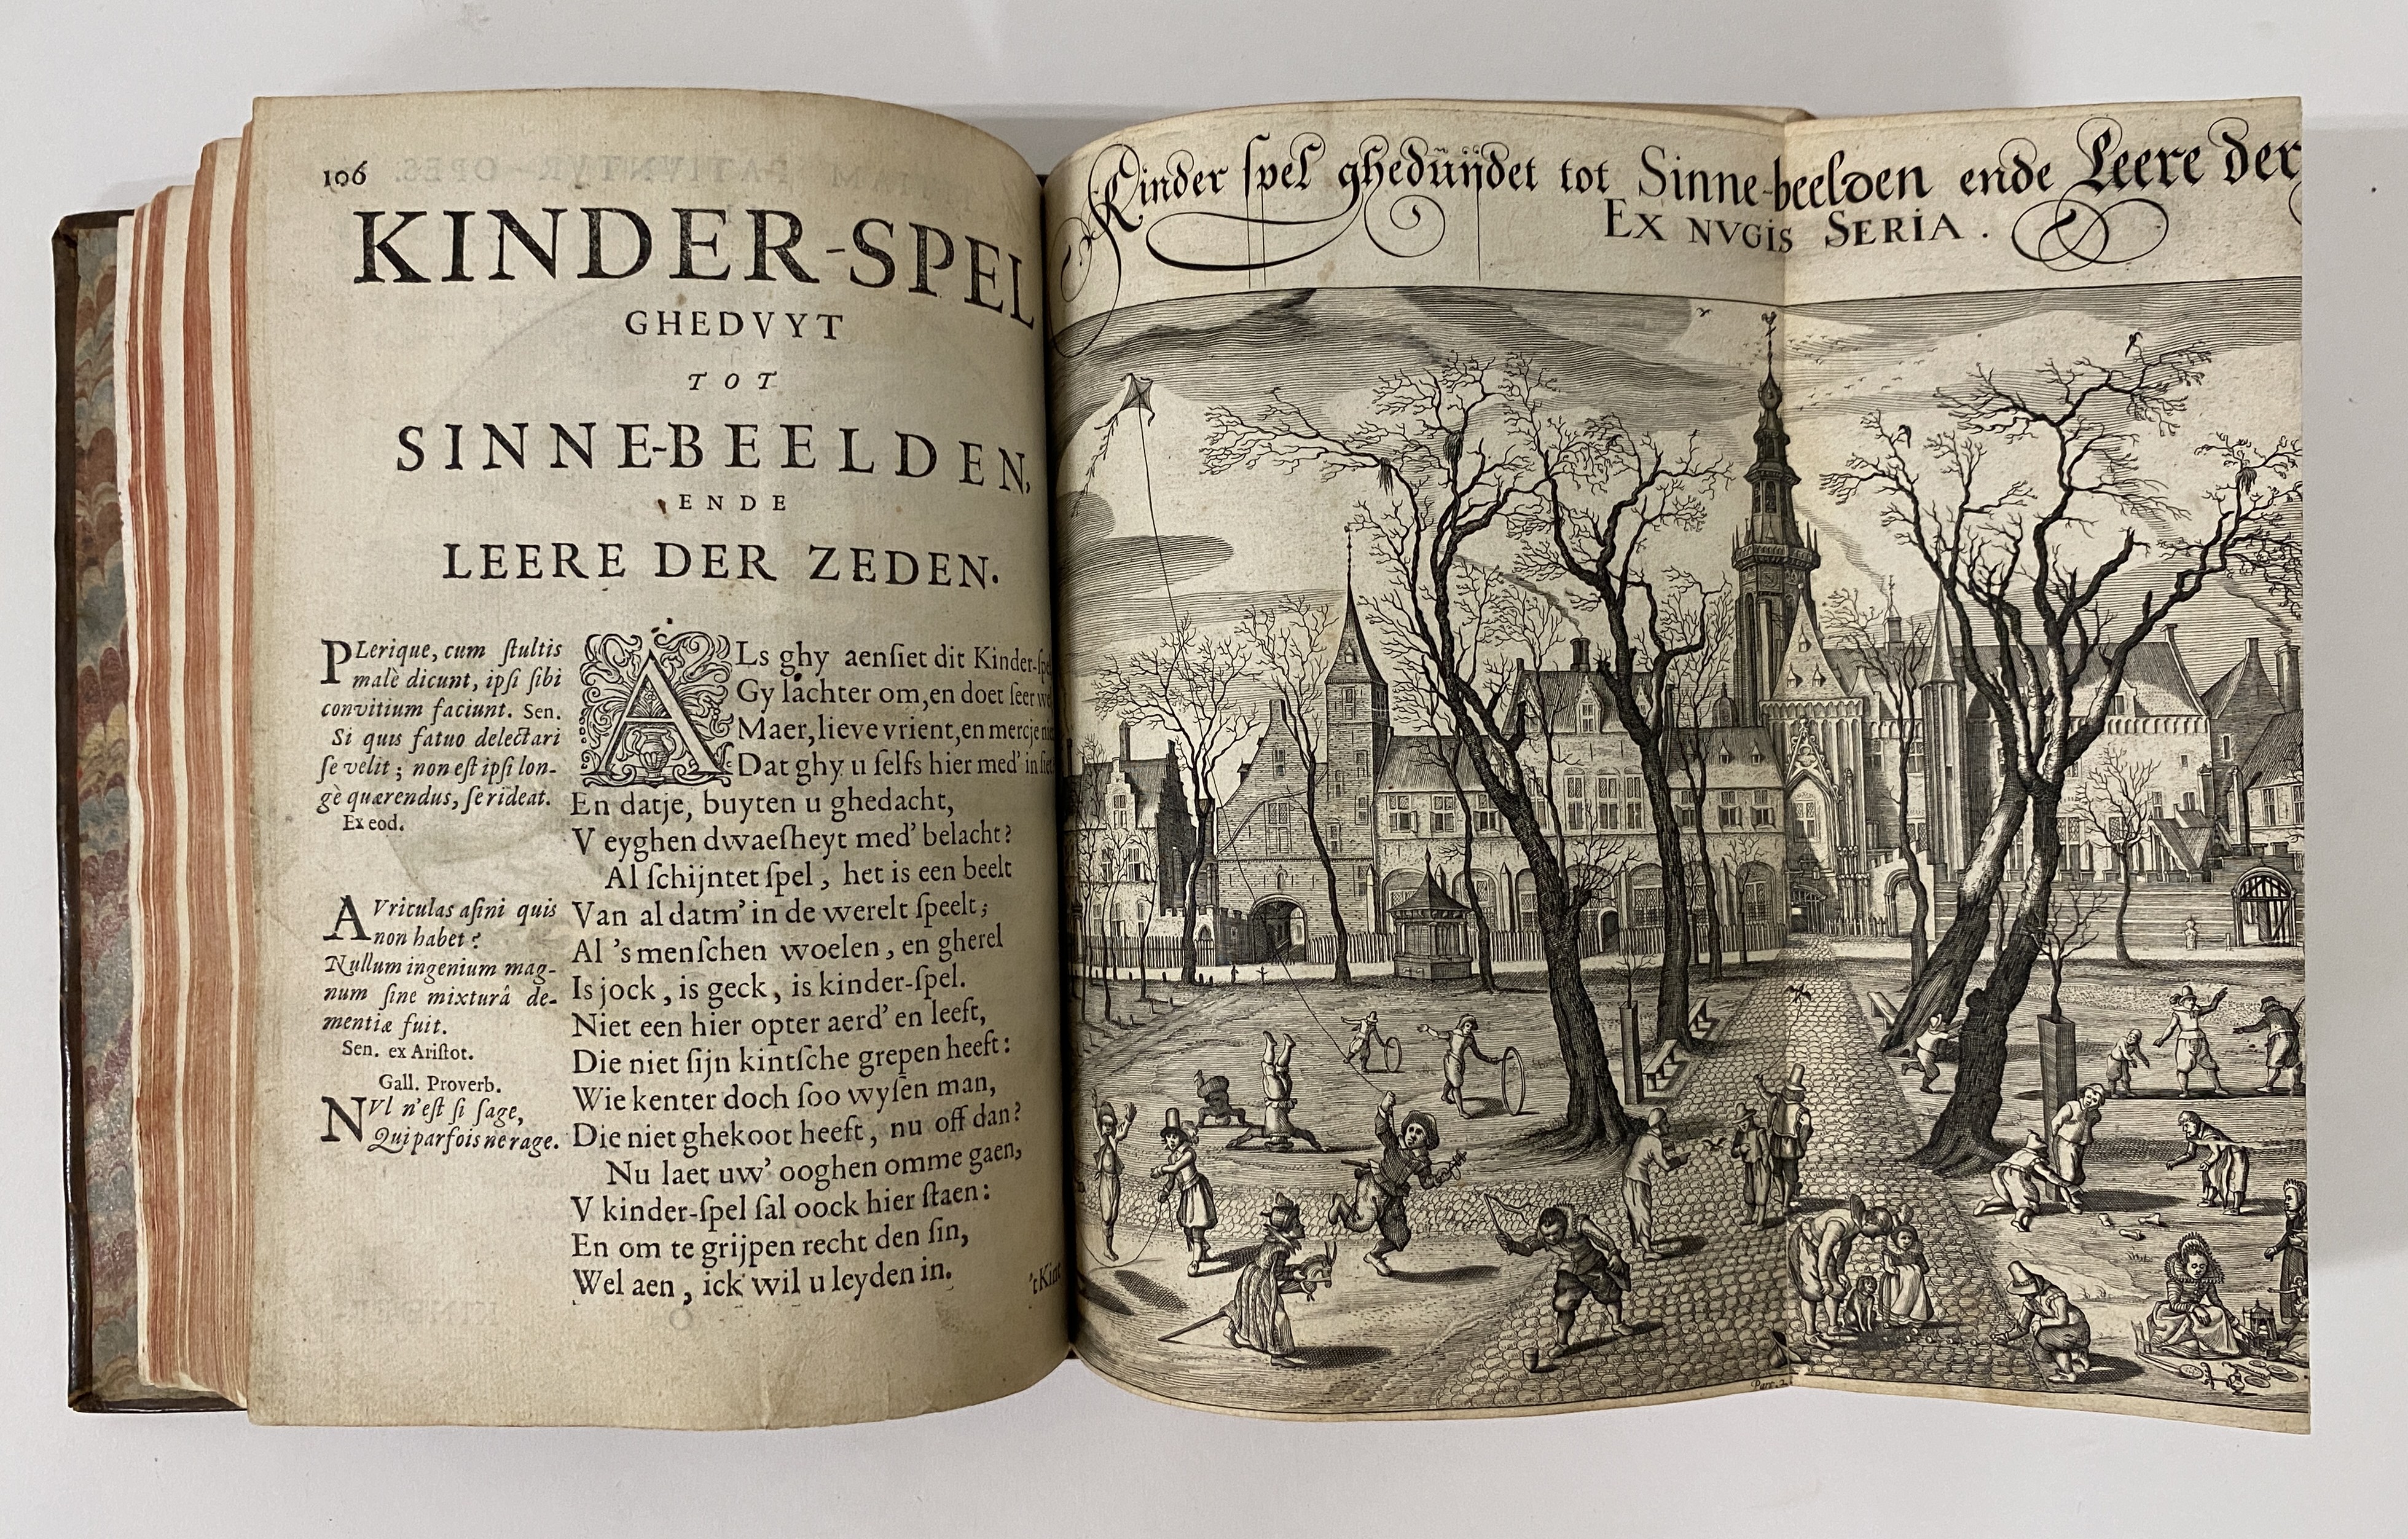 106
KINDER-SPEL
GHEDVYT
TOT
SINNE-BEELDEN,
ENDE
LEERE DER ZEDEN.
PLerique, cum ſtultis
malè dicunt, ipſi ſibi
convitium faciunt. Sen.
Si quis fatuo delectari
ſe velit; non eſt ipſi lon-
gè quærendus, ſe rideat.
Ex eod.
AVriculas aſini quis
non habet?
Nullum ingenium mag-
num ſine mixturâ de-
mentiæ fuit.
Sen. ex Ariſtot.
Gall. Proverb.
NVl n'eſt ſi ſage,
Qui parfois ne rage.
ALs ghy aenſiet dit Kinder-ſpel
Gy lachter om, en doet ſeer
Maer, lieve vrient, en mercje
Dat ghy u ſelfs hier med' in
En datje, buyten u ghedacht,
V eyghen dwaeſheyt med' belacht?
Al ſchijntet ſpel, het is een beelt
Van al datm' in de werelt ſpeelt;
Al 's menſchen woelen, en gherel
Is jock, is geck, is kinder-ſpel.
Niet een hier opter aerd' en leeft,
Die niet ſijn kintſche grepen heeft:
Wie kenter doch ſoo wyſen man,
Die niet ghekoot heeft, nu off dan?
Nu laet uw' ooghen omme gaen,
V kinder-ſpel ſal oock hier ſtaen:
En om te grijpen recht den ſin,
Wel aen, ick wil u leyden in.
't Kint
Kinder ſpel ghedúÿdet tot Sinne-beelden ende Leere der
EX NVGIS SERIA.